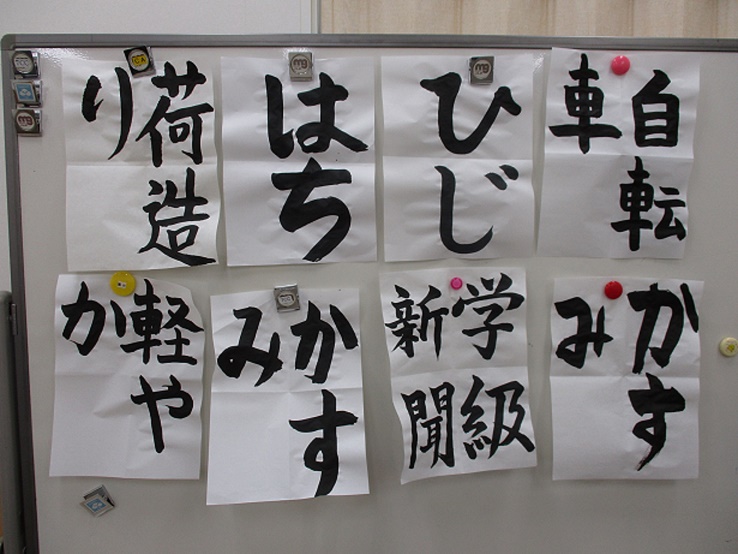 自転
車
ひじ
はち
荷造
り
かす
み
学級
新聞
かす
み
軽や
か